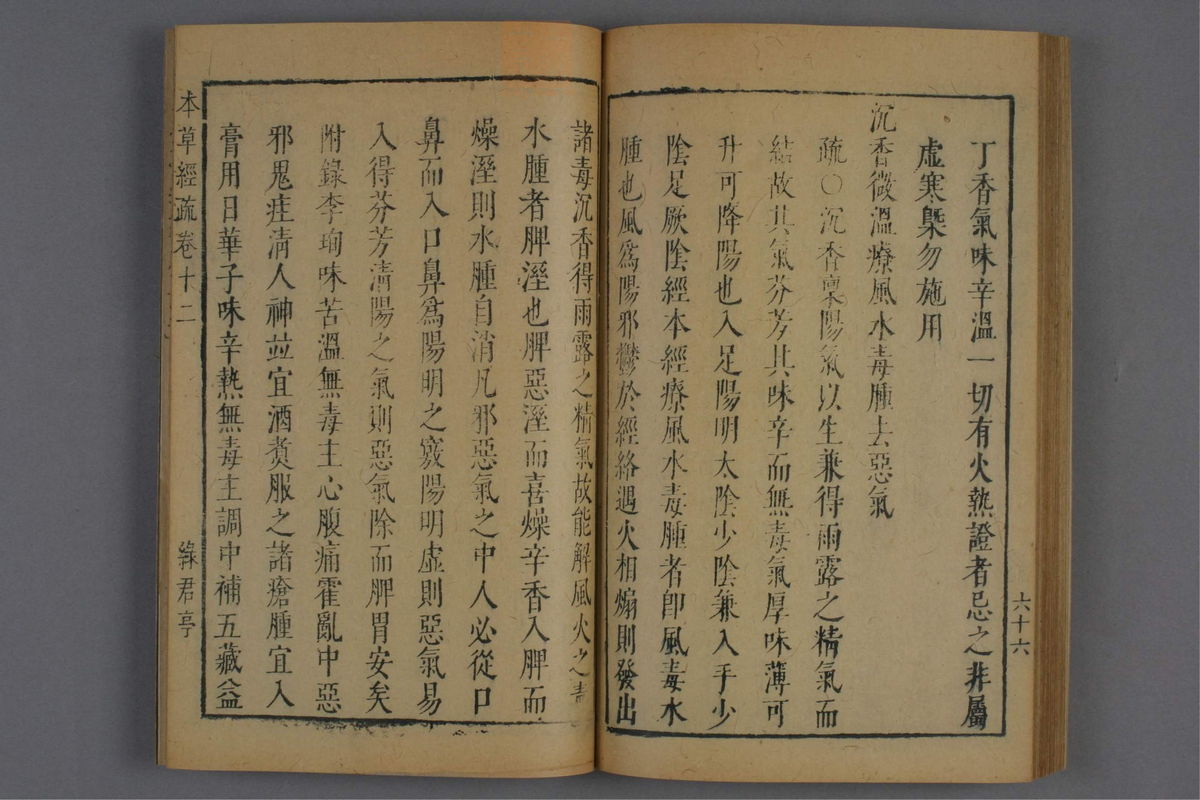 六十六
丁香氣味辛溫一切有火熱證者忌之非屬
虛寒槩勿施用
沉香微溫療風水毒腫去惡氣
疏○沉香稟陽氣以生兼得雨露之精氣而
結故其氣芬芳其味辛而無毒氣厚味薄可
升可降陽也入足陽明太陰少陰兼入手少
陰足厥陰經本經療風水毒腫者卽風毒水
腫也風爲陽邪鬱於經絡遇火相煽則發出
諸毒沉香得雨露之精氣故能解風火之毒
水腫者脾溼也脾惡溼而喜燥辛香入脾而
燥溼則水腫自消凡邪惡氣之中人必從口
鼻而入口鼻爲陽明之竅陽明虛則惡氣易
入得芬芳清陽之氣則惡氣除而脾胃安矣
附錄李珣味苦溫無毒主心腹痛霍亂中惡
邪鬼疰淸人神竝宜酒煑服之諸瘡腫宜入
膏用日華子味辛熱無毒主調中補五藏益
本草經疏卷十二
綠君亭